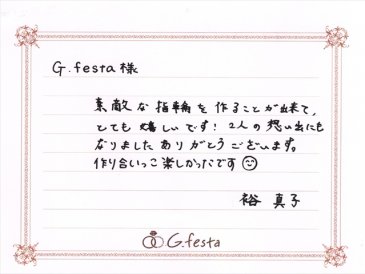 G.festa 様
素敵な指輪を作ることが出来て、
とても嬉しいです！2人の想い出にも
なりましたありがとうございます。
作り合いっこ楽しかったです
裕 真子
G.festa